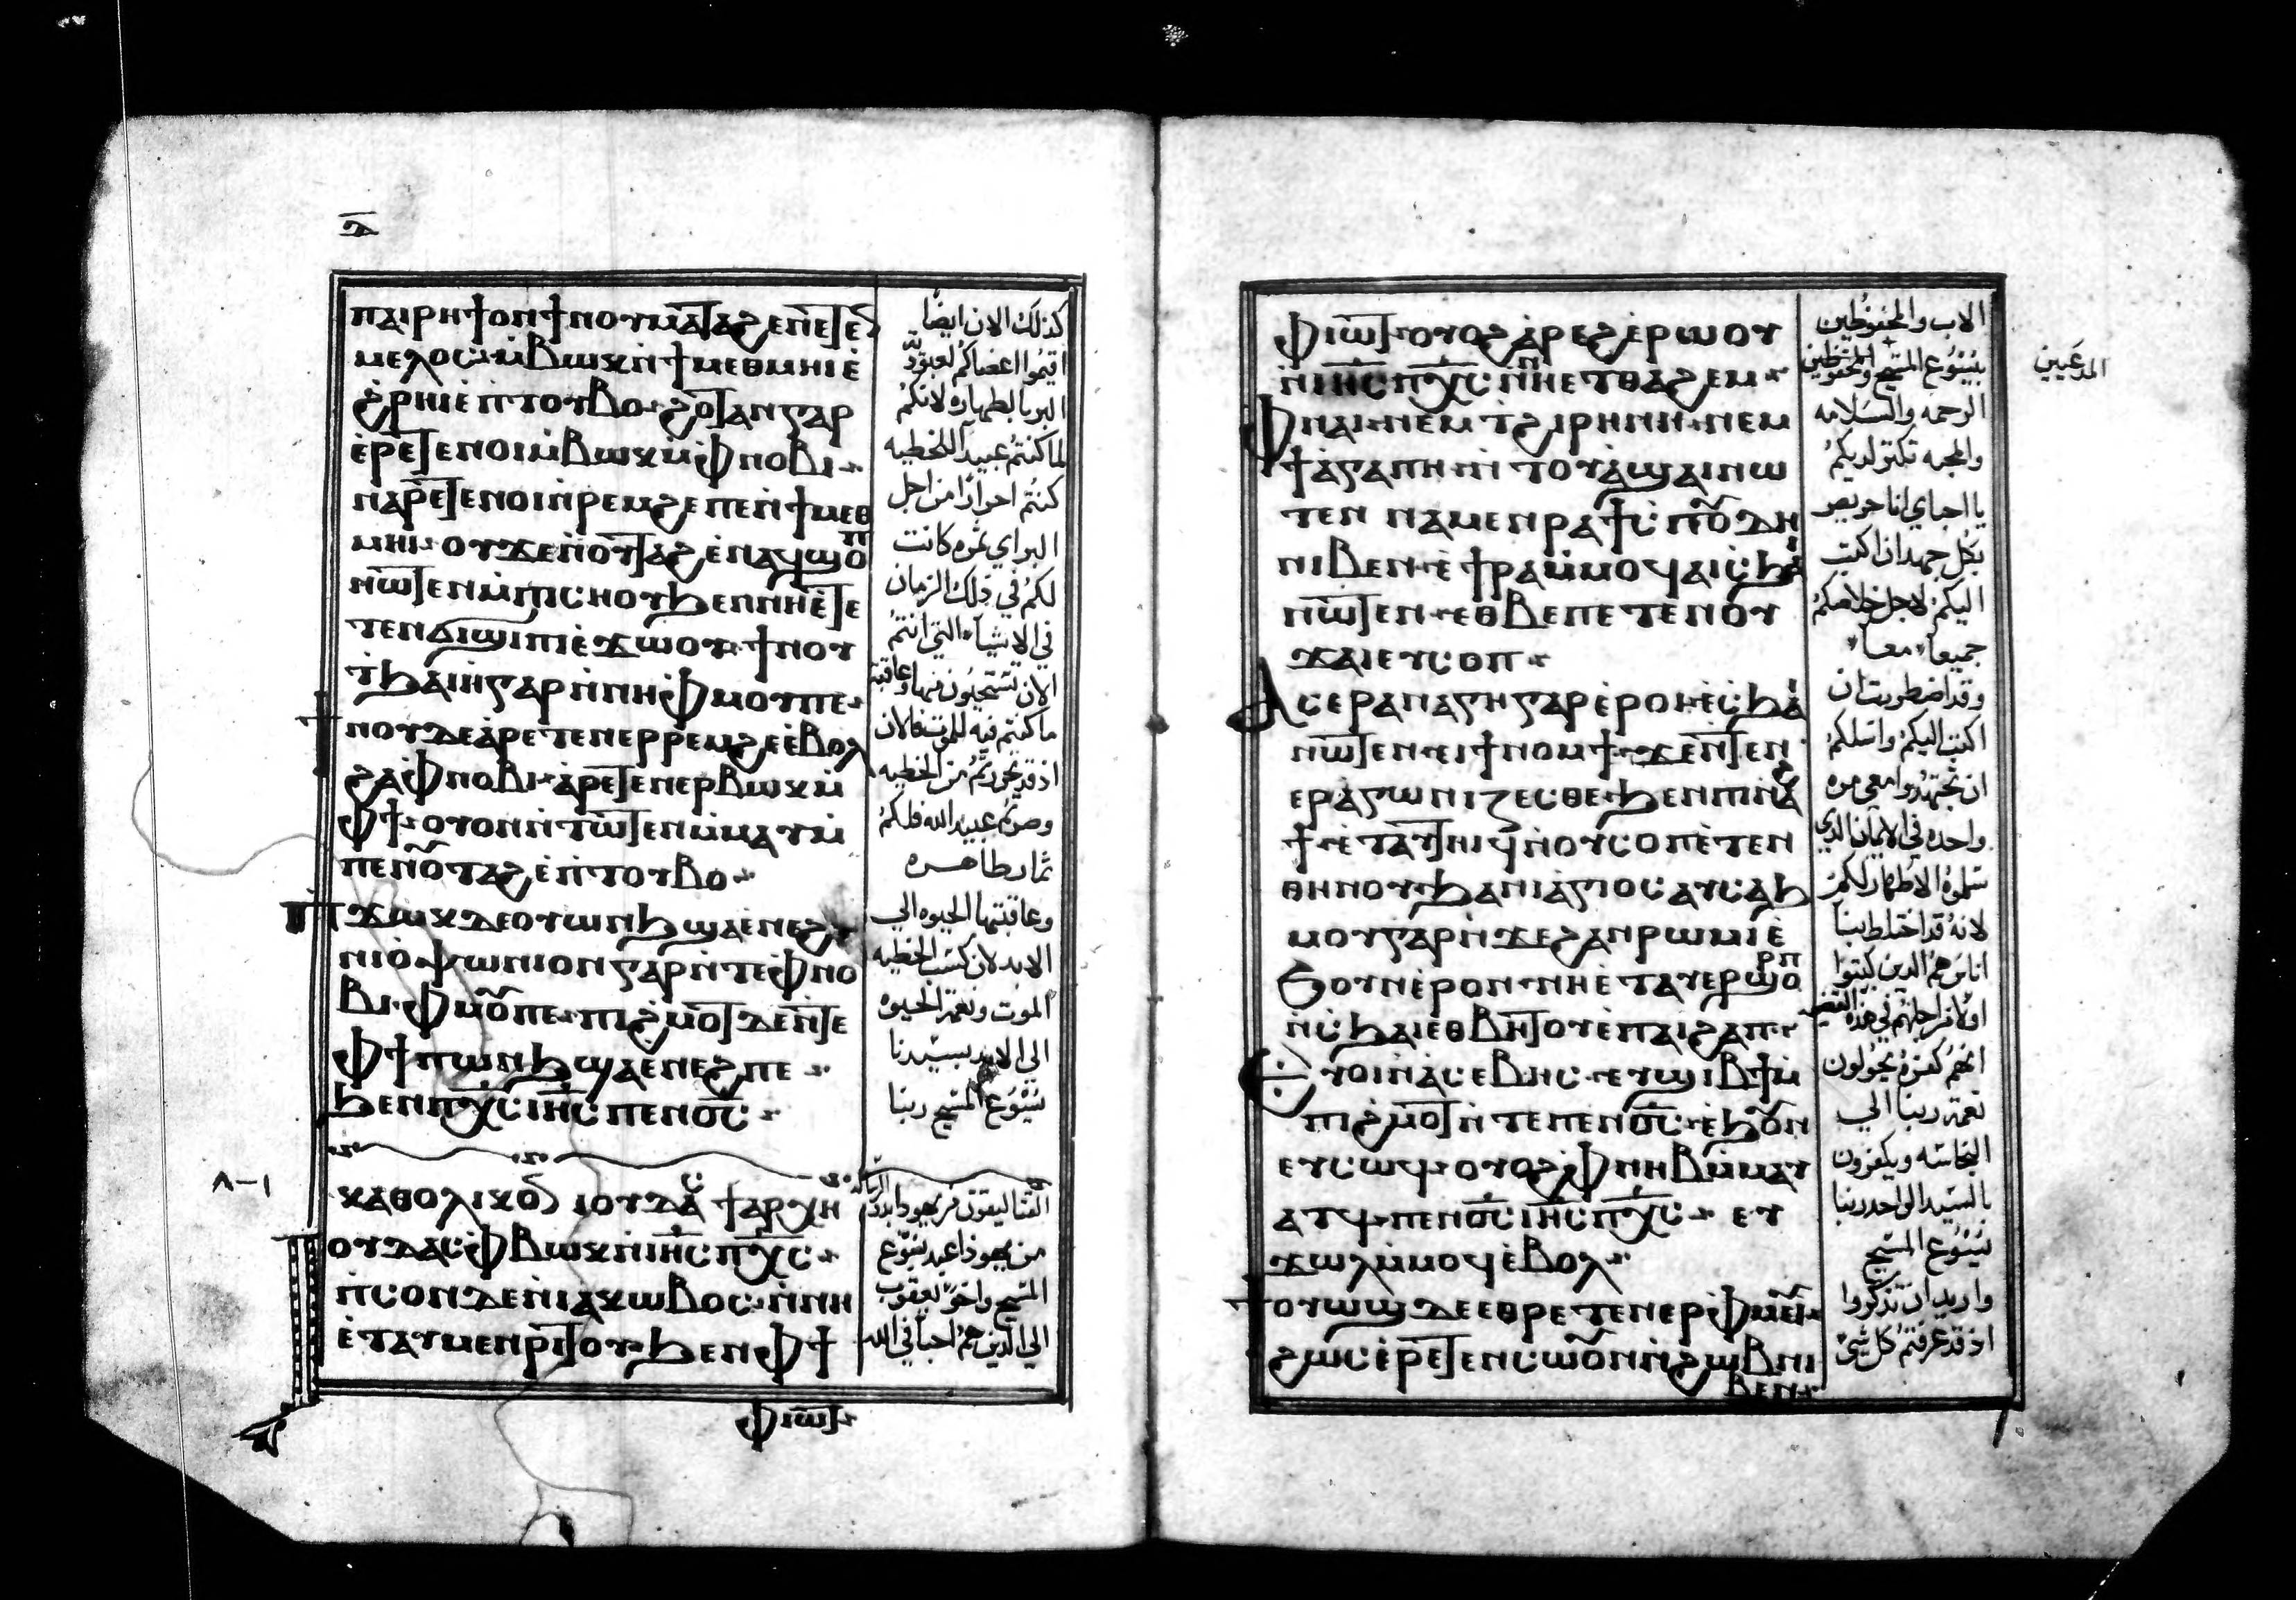 ⲇ̅
ⲡⲁⲓⲣⲏϯ ⲟⲛ ϯⲛⲟⲩ ⲙⲁⲧⲁϩⲉ ⲛⲉⲧⲉ
ⲙⲉⲗⲟⲥ ⲙ̀ⲃⲱⲕ ⲛ̀ϯⲙⲉⲑⲙⲏⲓ ⲉ̀
ϩ̀ⲣⲏⲓ ⲉ̀ⲡⲧⲟⲩⲃⲟ ϩⲟⲧⲁⲛ ⲅⲁⲣ
ⲉ̀ⲣⲉⲧⲉⲛⲟⲓ ⲙ̀ⲃⲱⲕ ⲙ̀ⲫⲛⲟⲃⲓ
ⲛⲁⲣⲉⲧⲉⲛⲟⲓ ⲛ̀ⲣⲉⲙϩⲉ ⲡⲉ ⲛ̀ϯⲙⲉⲑ
ⲙⲏⲓ ⲟⲩ ϫⲉ ⲛ̀ⲟⲩⲧⲁϩ ⲉ̀ⲛⲁϥϣⲟⲡ
ⲛⲱⲧⲉⲛ ⲙ̀ⲡⲓⲥⲏⲟⲩ ϧⲉⲛ ⲛⲏ ⲉ̀ⲧⲉ
ⲧⲉⲛϭⲓϣⲓⲡⲓ ⲉ̀ϫⲱⲟⲩ ϯⲛⲟⲩ
ⲧ̀ϧⲁⲓⲏ ⲅⲁⲣ ⲛ̀ⲛⲏ ⲫⲙⲟⲩ ⲡⲉ
ϯⲛⲟⲩ ⲇⲉ ⲁ̀ⲣⲉⲧⲉⲛⲉⲣⲣⲉⲙϩⲉ ⲉ̀ⲃⲟⲗ
ϩⲁ ⲫⲛⲟⲃⲓ ⲁ̀ⲣⲉⲧⲉⲛⲉⲣⲃⲱⲕ ⲙ̀
ⲫϯ ⲟⲩⲟⲛ ⲛ̀ⲧⲱⲧⲉⲛ ⲙ̀ⲙⲁⲩ ⲙ̀
ⲡⲉⲛⲟⲩⲧⲁϩ ⲉ̀ⲡⲧⲟⲩⲃⲟ
ⲡϫⲱⲕ ⲇⲉ ⲟⲩⲱⲛϧ ϣⲁ ⲉ̀ⲛⲉϩ
ⲛⲓⲟ̀ⲯⲱⲛⲓⲟⲛ ⲅⲁⲣ ⲛ̀ⲧⲉ ⲫⲛⲟ
ⲃⲓ ⲫⲙⲟⲩ ⲡⲉ ⲡⲓϩ̀ⲙⲟⲧ ⲇⲉ ⲛ̀ⲧⲉ
ⲫϯ ⲡⲱⲛϧ ϣⲁ ⲉ̀ⲛⲉϩ ⲡⲉ
ϧⲉⲛ ⲡⲭ̅ⲥ̅ ⲓⲏ̅ⲥ̅ ⲡⲉⲛⲟ̅ⲥ̅
ⲕⲁⲑⲟⲗⲓⲕⲟⲛ ⲓⲟⲩⲇⲁⲥ ϯⲁⲣⲭⲏ
ⲓⲟⲩⲇⲁⲥ ⲫⲃⲱⲕ ⲛ̀ⲓⲏ̅ⲥ̅ ⲡⲭ̅ⲥ̅
ⲡ̀ⲥⲟⲛ ⲇⲉ ⲛ̀ⲓⲁⲕⲱⲃⲟⲥ ⲛ̀ⲛⲏ
ⲉ̀ⲧⲁⲩⲙⲉⲛⲣⲓⲧⲟⲩ ϧⲉⲛ ⲫϯ
ⲫⲓⲱⲧ
كذلك الان ايضا
اقيموا اعضاكم لعبوديه
البر بالطهاره لانكم
لما كنتم عبيدا للخطيه
كنتم احرارا من اجل
البر اي ثمره كانت
لكم في ذلك الزمان
في الاشياء التي انتم
الان تستحيون منها وعاقبة
ما كنتم فيه للموت فالان
اذ قد تحررتم من الخطيه
وصرتم عبيد الله فلكم
ثمار طاهره
وعاقبتها الحيوه الي
الابد لان كسب الخطيه
الموت ونعمة الحيوه
الى الابد بسيدنا
يسوع المسيح ربنا
من يهوذا عبد يسوع
المسيح واخو يعقوب
الي الذين هم احبا في الله
١-٨
ⲫⲓⲱⲧ ⲟⲩⲟϩ ⲁ̀ⲣⲉϩ ⲉ̀ⲣⲱⲟⲩ
ⲛ̀ⲓⲏ̅ⲥ̅ ⲡⲭ̅ⲥ̅ ⲛ̀ⲛⲏ ⲉⲧⲑⲁϩⲉⲙ
ⲫⲛⲁⲓ ⲛⲉⲙ ⲧ̀ϩⲓⲣⲏⲛⲏ ⲛⲉⲙ
ϯⲁ̀ⲅⲁⲡⲏ ⲛ̀ⲧⲟⲩⲁ̀ϣⲁⲓ ⲛⲱ
ⲧⲉⲛ ⲛⲁⲙⲉⲛⲣⲁϯ ⲥⲡⲟⲩⲇⲏ
ⲛⲓⲃⲉⲛ ⲉ̀ϯⲣⲁ ⲙ̀ⲙⲟϥ ⲁⲓⲥϧⲁⲓ
ⲛⲱⲧⲉⲛ ⲉⲑⲃⲉ ⲡⲉⲧⲉⲛⲟⲩ
ϫⲁⲓ ⲉⲩⲥⲟⲡ
ⲁⲥⲉⲣⲁⲛⲁⲅⲕⲏ ⲅⲁⲣ ⲉ̀ⲣⲟⲓ ⲉ̀ⲥϧⲁⲓ
ⲛⲱⲧⲉⲛ ⲉⲓϯⲛⲟⲙϯ ϫⲉ ⲛ̀ⲧⲉⲛ
ⲉⲣⲁⲅⲱⲛⲓⲍⲉⲥⲑⲉ ϧⲉⲛ ⲡⲓⲛⲁϩ
ϯ ⲉ̀ⲧⲁⲩⲧⲏⲓϥ ⲛ̀ⲟⲩⲥⲟⲡ ⲉ̀ⲧⲉⲛ
ⲑⲏⲛⲟⲩ ϧⲁ ⲛⲓⲁ̀ⲅⲓⲟⲥ ⲁⲩⲥⲁϧ
ⲙⲟⲩ ⲅⲁⲣ ⲛ̀ϫⲉ ϩⲁⲛⲣⲱⲙⲓ ⲉ̀
ϧⲟⲩⲛ ⲉ̀ⲣⲟⲛ ⲛⲏ ⲉ̀ⲧⲁⲩⲉⲣϣⲟⲣⲡ
ⲛ̀ⲥϧⲁⲓ ⲉⲑⲃⲏⲧⲟⲩ ⲉ̀ⲡⲁⲓϩⲁⲡ
ⲉⲩⲟⲓ ⲛ̀ⲁ̀ⲥⲉⲃⲏⲥ ⲉⲩϣⲓⲃϯ ⲙ̀
ⲡⲓϩ̀ⲙⲟⲧ ⲛ̀ⲧⲉ ⲡⲉⲛⲟ̅ⲥ̅ ⲉ̀ϧⲟⲩⲛ
ⲉⲩⲥⲱϥ ⲟⲩⲟϩ ⲫⲛⲏⲃ ⲙ̀ⲙⲁⲩ
ⲁⲧϥ ⲡⲉⲛⲟ̅ⲥ̅ ⲓⲏ̅ⲥ̅ ⲡⲭ̅ⲥ̅ ⲉⲩ
ϫⲱⲗ ⲙ̀ⲙⲟϥ ⲉ̀ⲃⲟⲗ
ϯⲟⲩⲱϣ ⲇⲉ ⲉⲑⲣⲉⲧⲉⲛⲉⲣⲫⲙⲉⲩⲓ
ϩⲱⲥ ⲉ̀ⲣⲉⲧⲉⲛⲥⲱⲟⲩⲛ ⲛ̀ϩⲱⲃ ⲛⲓ
ⲃⲉⲛ
الاب والمحفوظين
بيسوع المسيح
الرحمه والسلامه
والمحبه تكثر لديكم
يا احباي انا حريص
بكل جهد ان اكتب
اليكم لاجل خلاصكم
جميعا معا
وقد اضطررت ان
اكتب اليكم واسلكم
ان تجتهدوا معي مره
واحده في الايمان الذي
سلموه الاطهار لكم
لانه قد اختلط بنا
اناس هم الذين كتبوا
انهم كفره يحولون
نعمة ربنا الي
النجاسه ويكفرون
بالسيد الواحد ربنا
يسوع المسيح
واريد ان تذكروا
اذ قد عرفتم كل شي
المدعيين